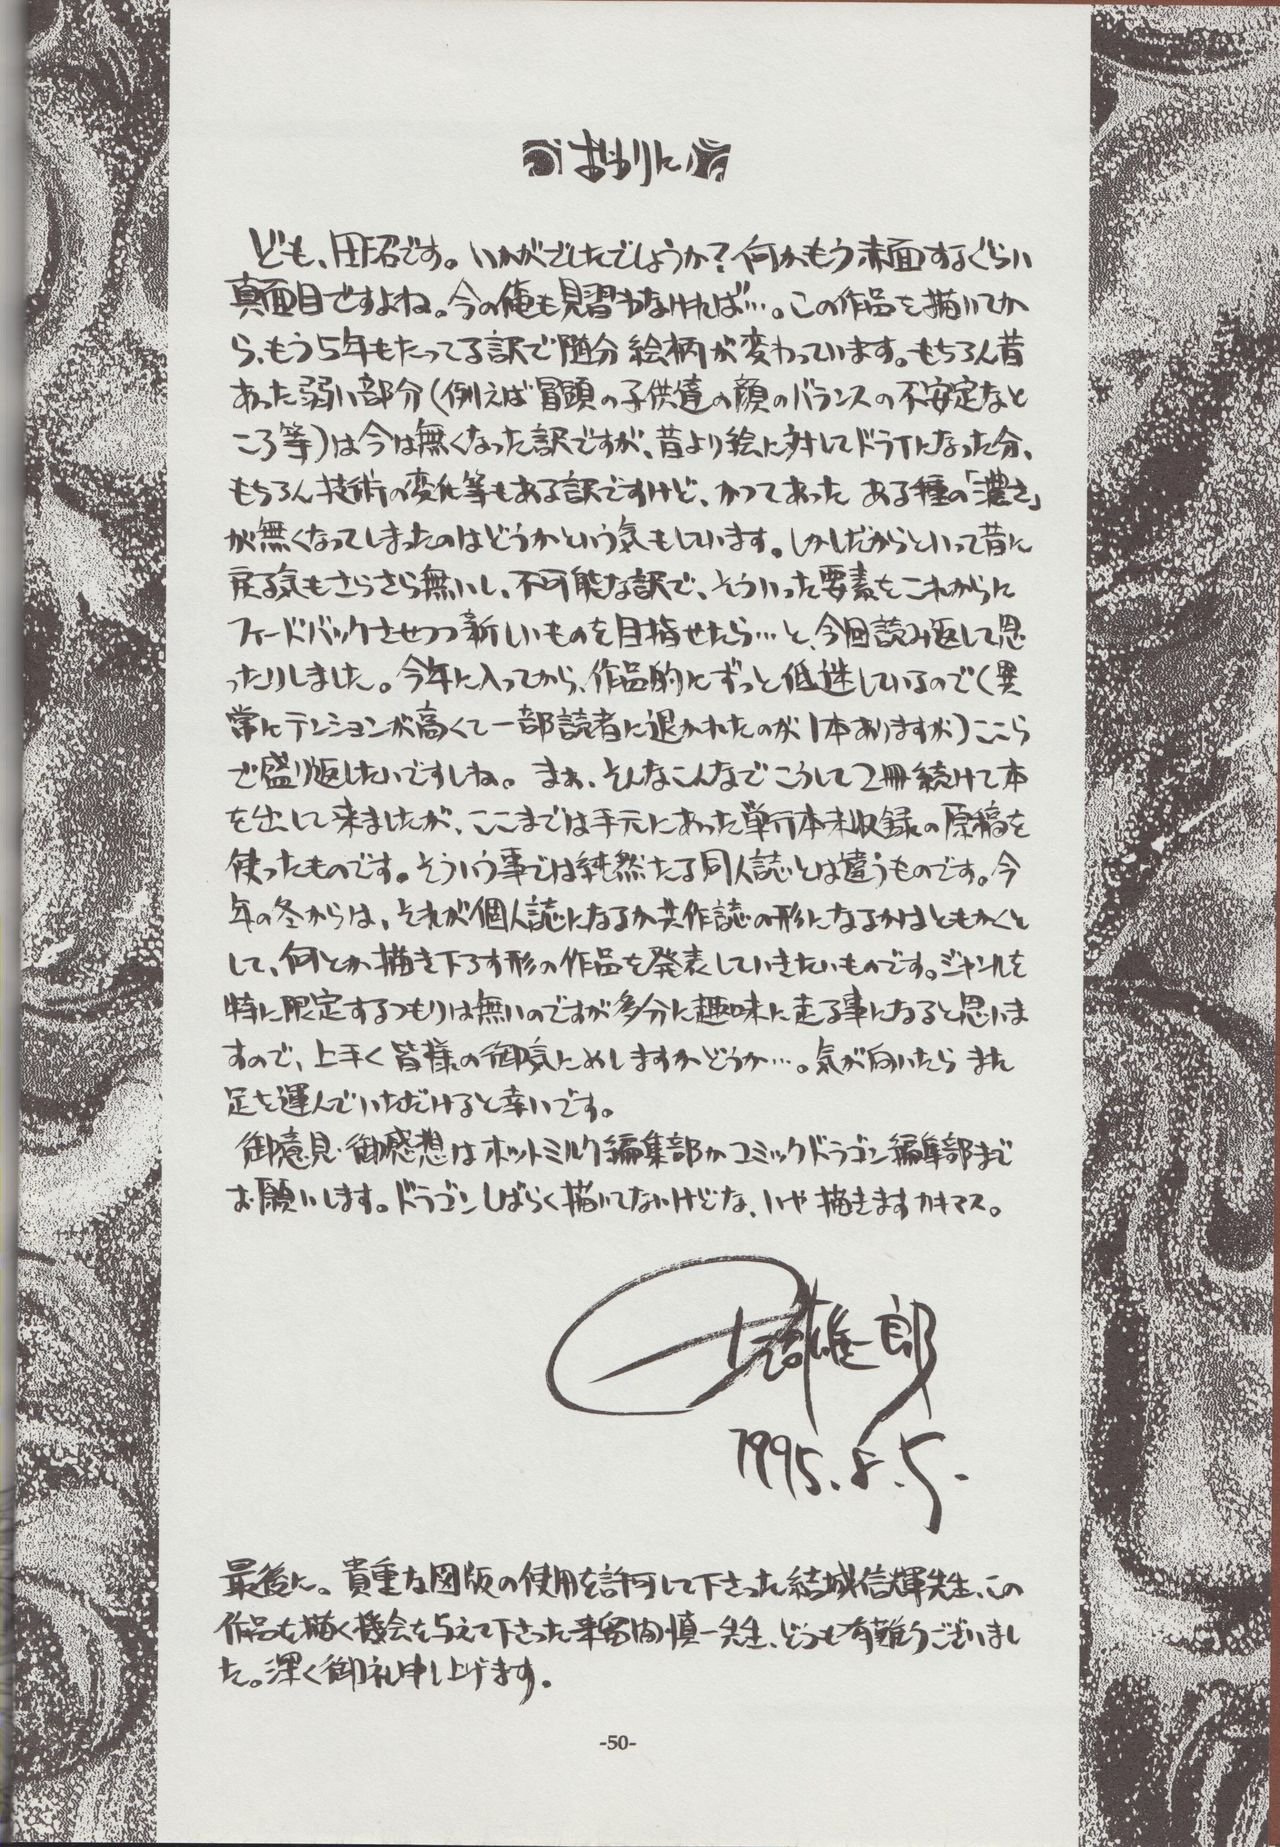 おわりに
ども、田沼です。いかがでしたでしょうか？何かもう赤面するぐらい
真面目ですよね。今の俺も見習わなければ…。この作品を描いてか
ら、もう5年もたってる訳で随分絵柄が変わっています。もちろん昔
あった弱い部分（例えば冒頭の子供達の顔のバランスの不安定なと
ころ等）は今は無くなった訳ですが、昔より絵に対してドライになった分、
もちろん技術の変化等もある訳ですけど、かつてあった ある種の「濃さ」
が無くなってしまったのはどうかという気もしています。しかしだからといって昔に
戻る気もさらさら無いし、不可能な訳で、そういった要素をこれからに
フィードバックさせつつ新しいものを目指せたら…と、今回読み返して思
ったりしました。今年に入ってから、作品的にずっと低迷しているので（異
常にテンションが高くて一部読者に退かれたのが1本ありますが）ここら
で盛り返したいですしね。まぁ、そんなこんなでこうして2冊続けて本
を出して来ましたが、ここまでは手元にあった単行本未収録の原稿を
使ったものです。そういう事では純然たる同人誌とは違うものです。今
年の冬からは、それが個人誌になるか共作誌の形になるかはともかくと
して、何とか描き下ろす形の作品を発表していきたいものです。ジャンルを
特に限定するつもりは無いのですが多分に趣味に走る事になると思いま
すので、上手く皆様の御気にめしますかどうか…。気が向いたら また
足を運んでいただけると幸いです。
御意見・御感想はホットミルク編集部かコミックドラゴン編集部まで
お願いします。ドラゴンしばらく描いてないけどな、いや描きますカキマス。
田沼雄一郎
1995.8.5.
最後に。貴重な図版の使用を許可して下さった結城信輝先生、この
作品を描く機会を与えて下さった来留間慎一先生、どうも有難うございまし
た。深く御礼申し上げます。
-50-